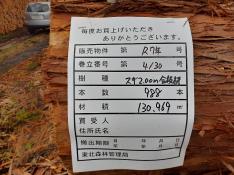 毎度お買上げいただき
ありがとうございます。
販売物件 第 R7年 号
巻立番号 第 4/30 号
樹種 スギ2.00m
本数 988 本
材積 130.969 m³
買受人
住所氏名
搬出期間 自 年 月 日
至 年 月 日
東北森林管理局